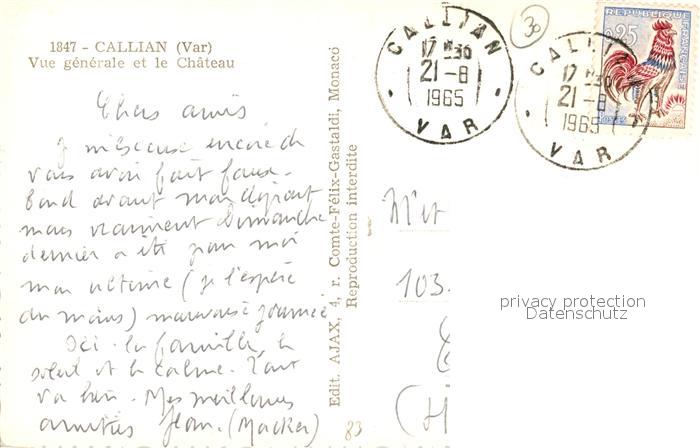 1847 - CALLIAN (Var)
Vue générale et le Château
Chers amis
Je m'excuse encore de
vous avoir fait faux-
bond avant mon départ
mais vraiment Dimanche
dernier a été pour moi
mon ultime (je l'espère
du moins) mauvaise journée
Ici la famille, le
soleil et le calme. Tout
va bien. Mes meilleures
amitiés Jean. (Macker)
83
Edit. AJAX, 4, r. Comte-Félix-Gastaldi, Monaco
Reproduction interdite
30
CALLIAN
17 H 30
21-8
1965
VAR
CALLIAN
17 H 30
21-8
1965
VAR
REPUBLIQUE FRANÇAISE
0,25
POSTES
M et
103.
privacy protection
Datenschutz